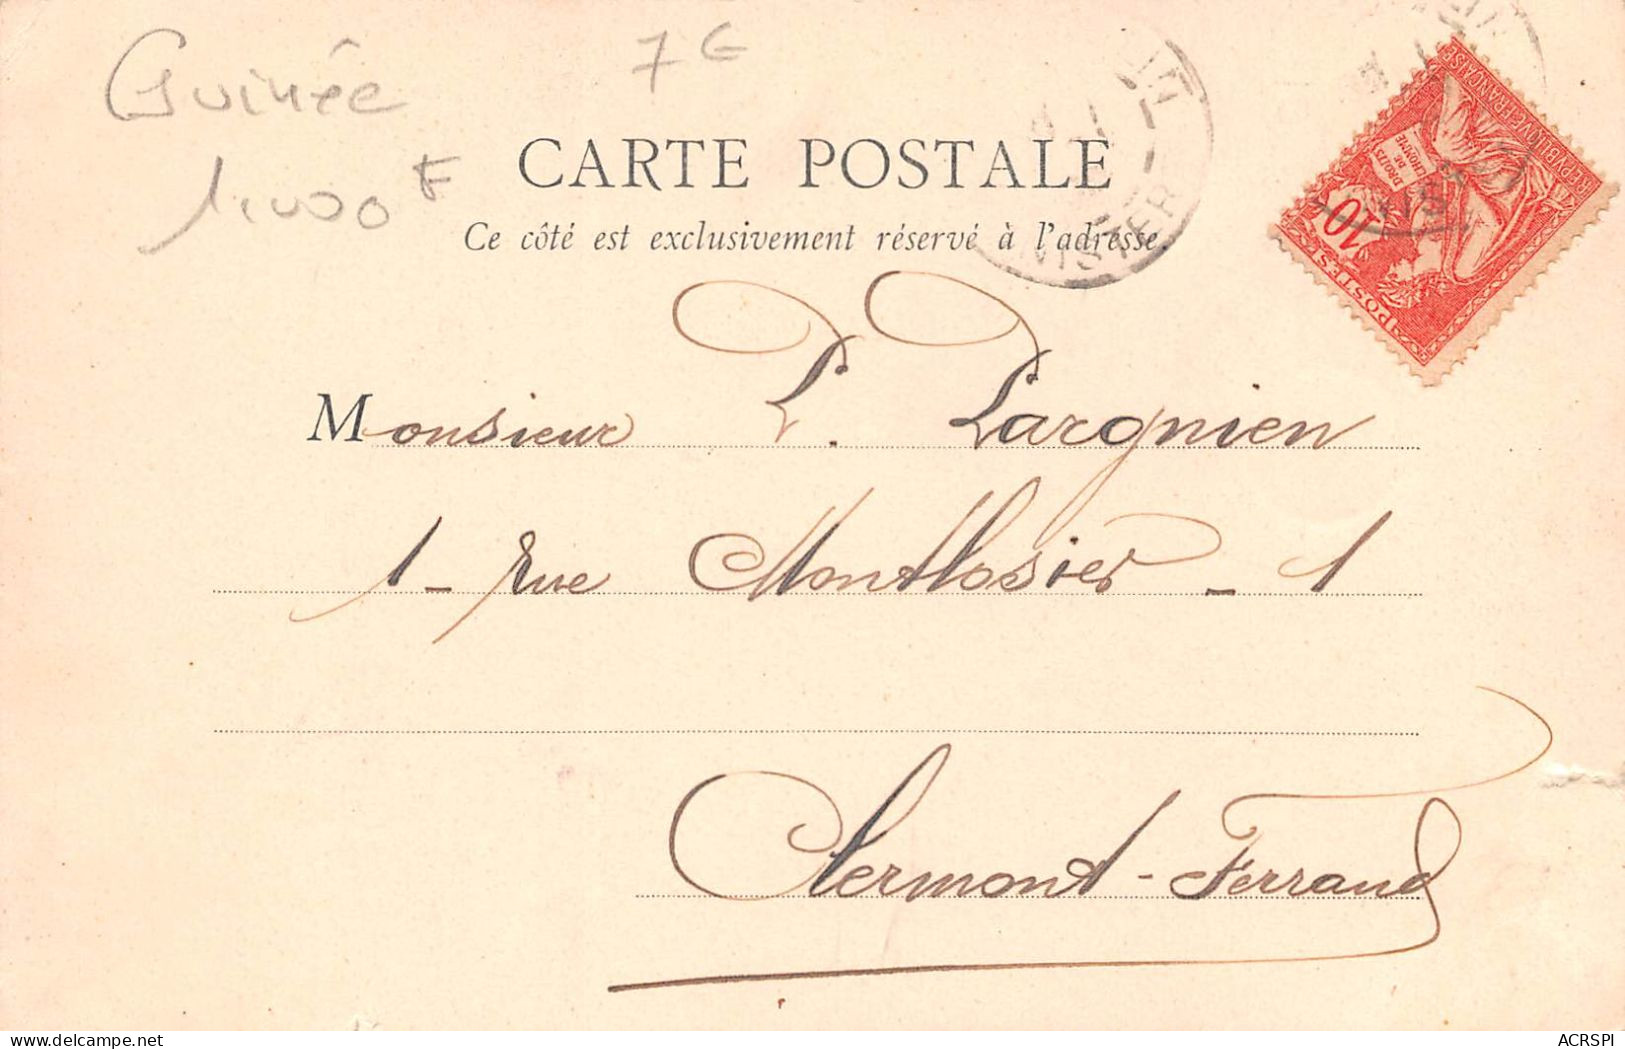 Guinée
7 €
CARTE POSTALE
Ce côté est exclusivement réservé à l'adresse.
FINISTÈRE
RÉPUBLIQUE FRANÇAISE
DROITS
DE
L'HOMME
10
POSTES
Monsieur L. Largnien
1 - Rue Montlosier - 1
Clermont-Ferrand
www.delcampe.net
ACRSPI